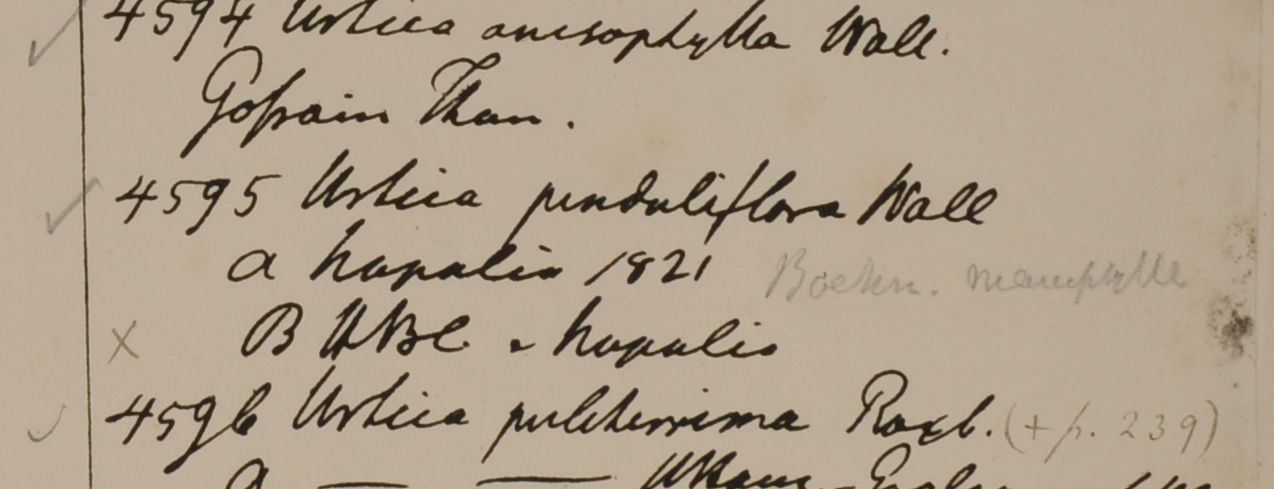 4594 Urtica anisophylla Wall.
Gossain Than.
4595 Urtica penduliflora Wall
a Napalia 1821 Boehm. macrophylla
B HBC. e Napalia
4596 Urtica pulcherrima Roxb. (+ p. 239)